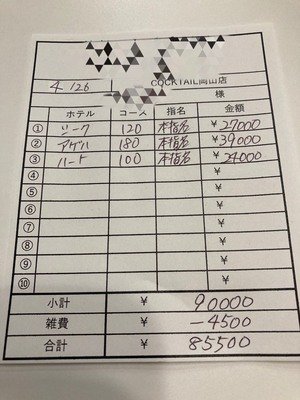 COCKTAIL岡山店
4/26 様
ホテル コース 指名 金額
① シーク 120 本指名 ¥27000
② アゲハ 180 本指名 ¥39000
③ ハート 100 本指名 ¥24000
④ ¥
⑤ ¥
⑥ ¥
⑦ ¥
⑧ ¥
⑨ ¥
⑩ ¥
小計 ¥ 90000
雑費 ¥ -4500
合計 ¥ 85500